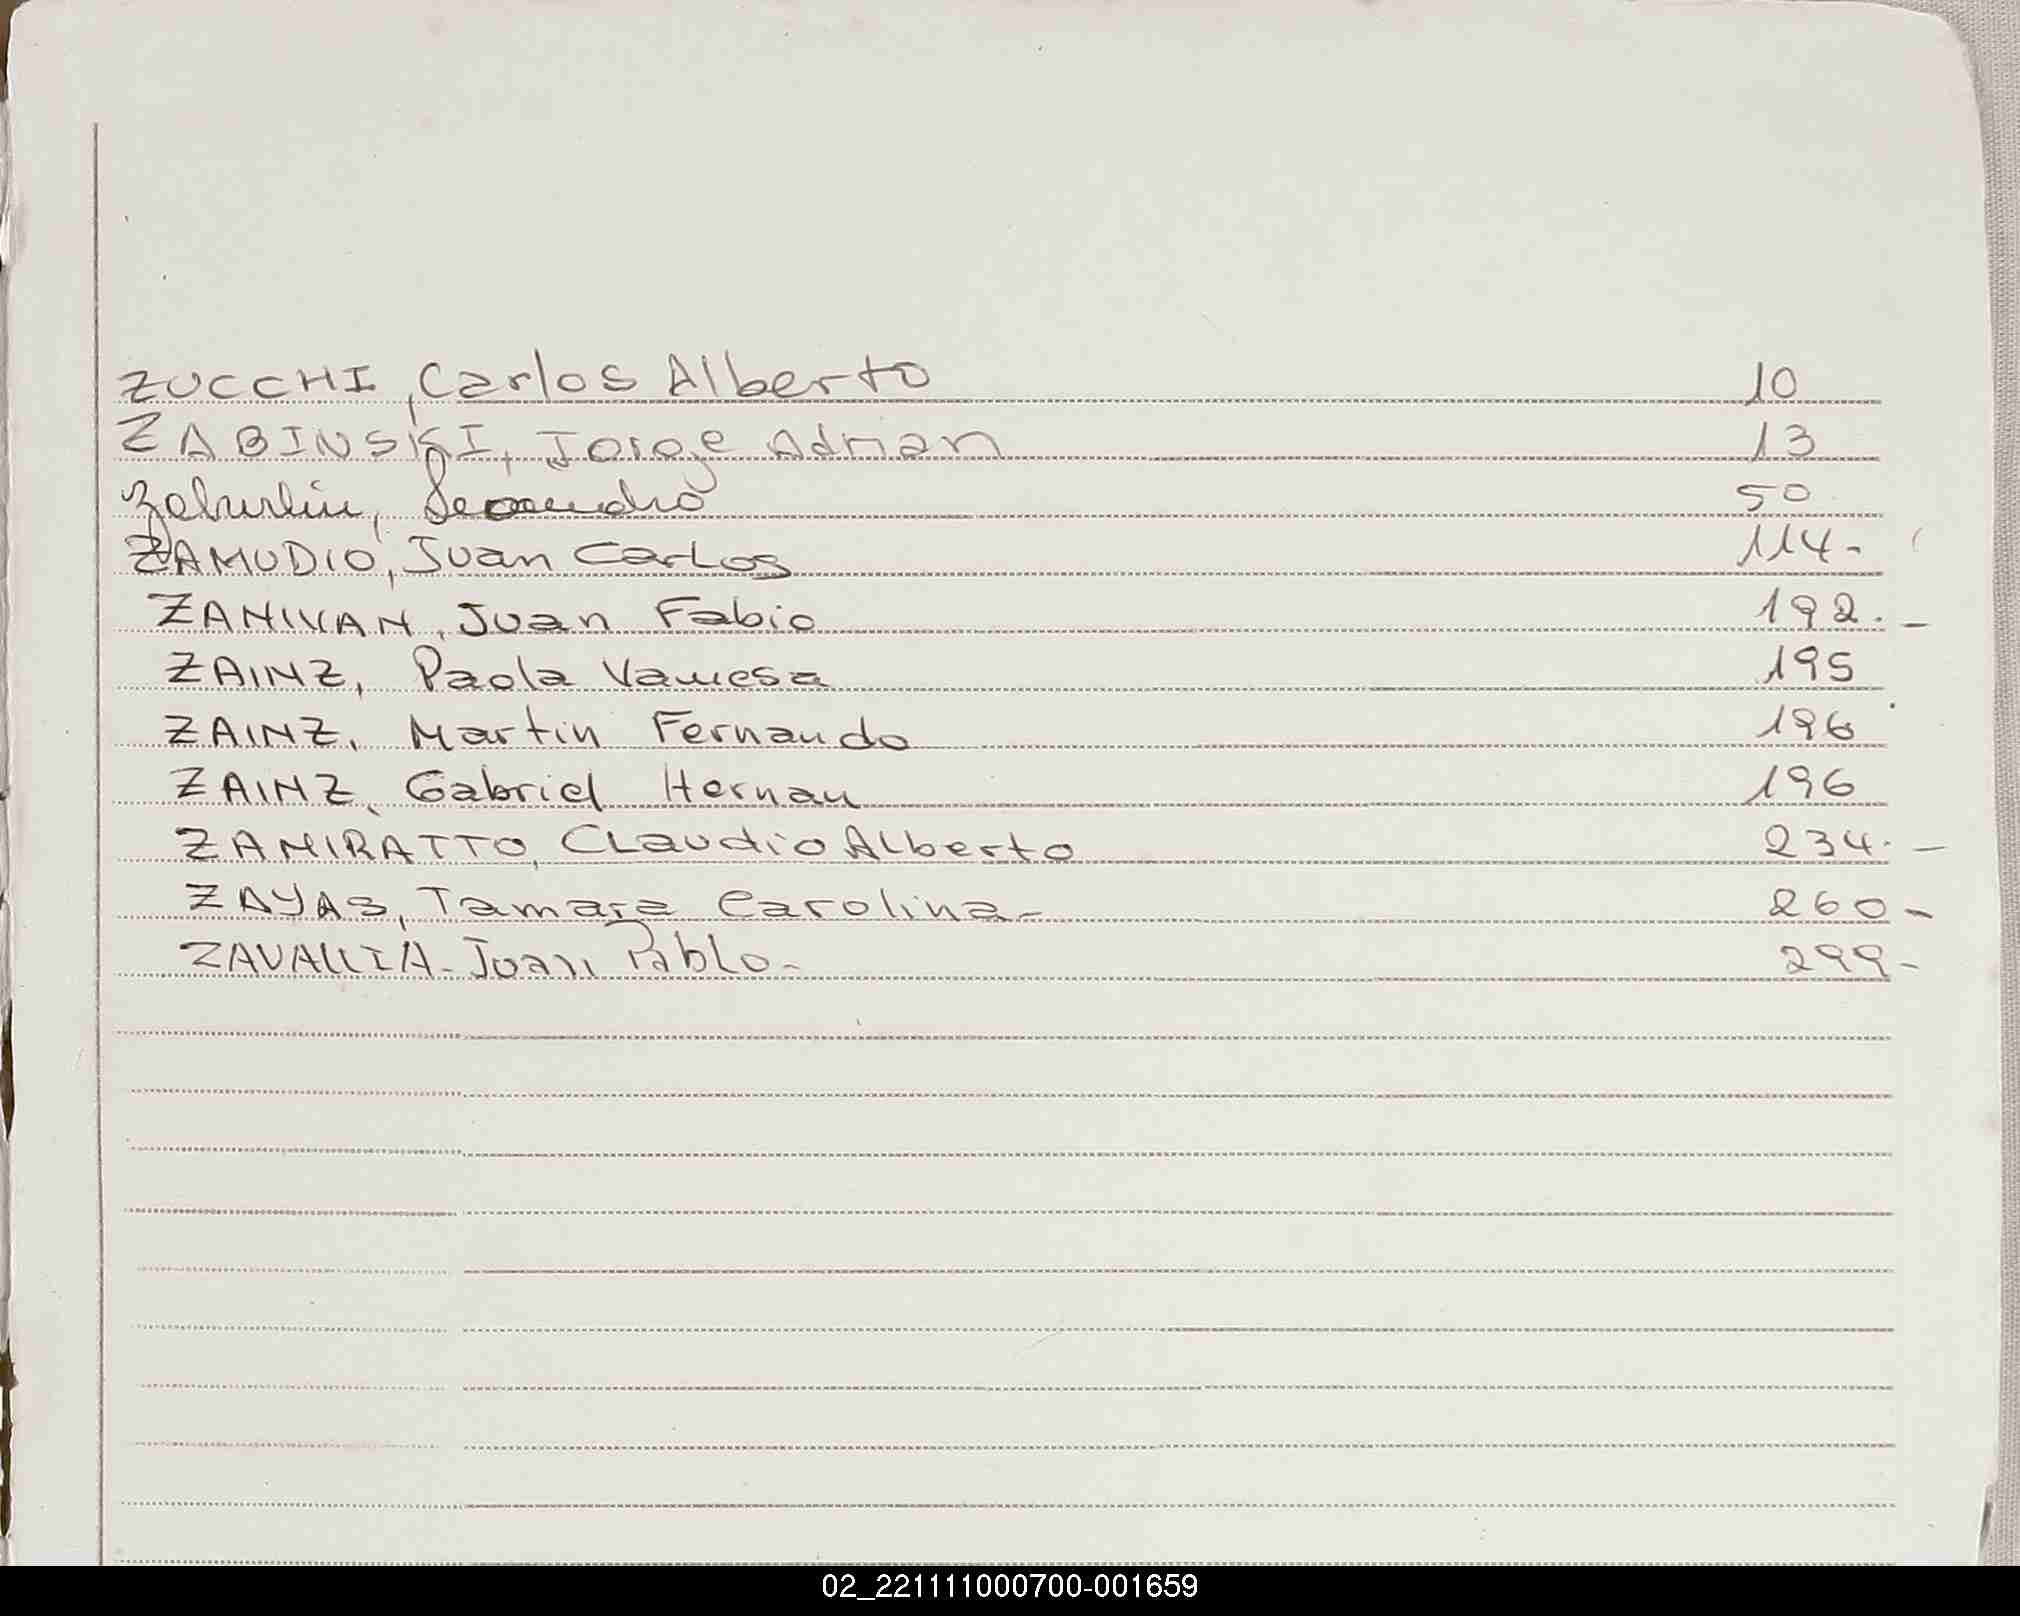 ZUCCHI, Carlos Alberto 10
ZABINSKI, Jorge Adrian 13
Zaburlin, Leandro 50
ZAMUDIO, Juan Carlos 114-
ZANIVAN, Juan Fabio 192.-
ZAINZ, Paola Vanesa 195
ZAINZ, Martin Fernando 196
ZAINZ, Gabriel Hernan 196
ZANIRATTO, Claudio Alberto 234.-
ZAYAS, Tamara Carolina- 260-
ZAVALLIA- Juan Pablo- 299-
02_221111000700-001659